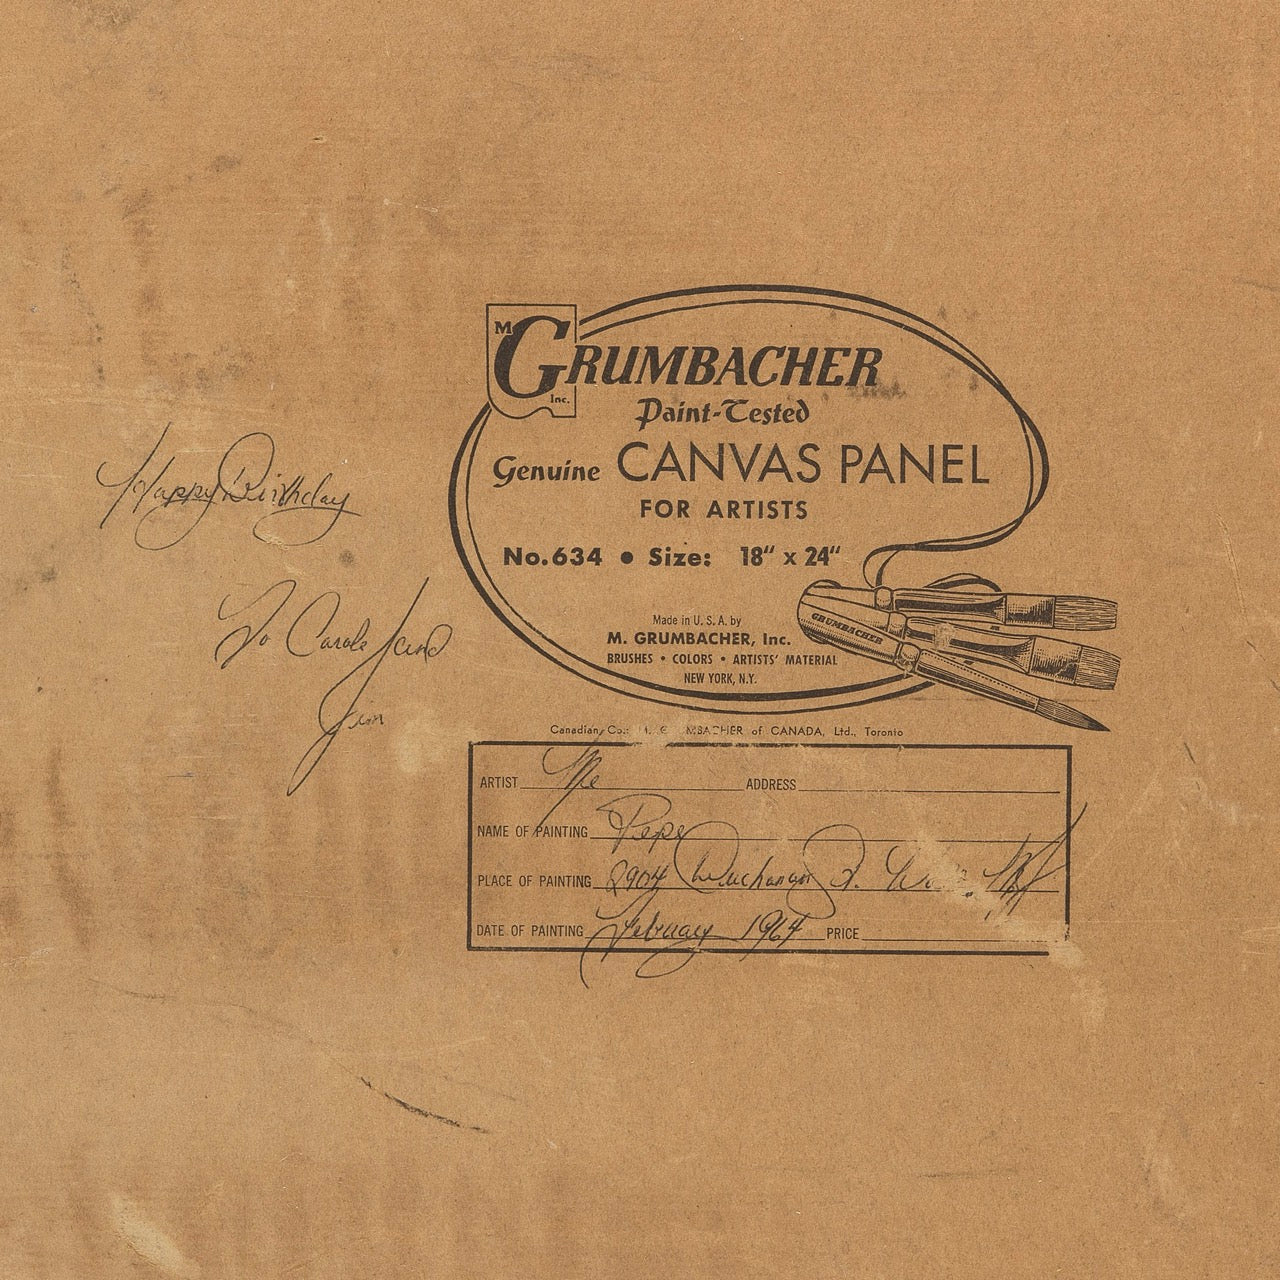 M GRUMBACHER Inc.
Paint-Tested
Genuine CANVAS PANEL
FOR ARTISTS
No.634 • Size: 18" x 24"
GRUMBACHER
Made in U.S.A. by
M. GRUMBACHER, Inc.
BRUSHES • COLORS • ARTISTS' MATERIAL
NEW YORK, N.Y.
Happy Birthday
To Carole and
Jim
Canadian Co.: M. GRUMBACHER of CANADA, Ltd., Toronto
ARTIST Me ADDRESS
NAME OF PAINTING Pepe
PLACE OF PAINTING 2904 Buchanan
DATE OF PAINTING February 1964 PRICE